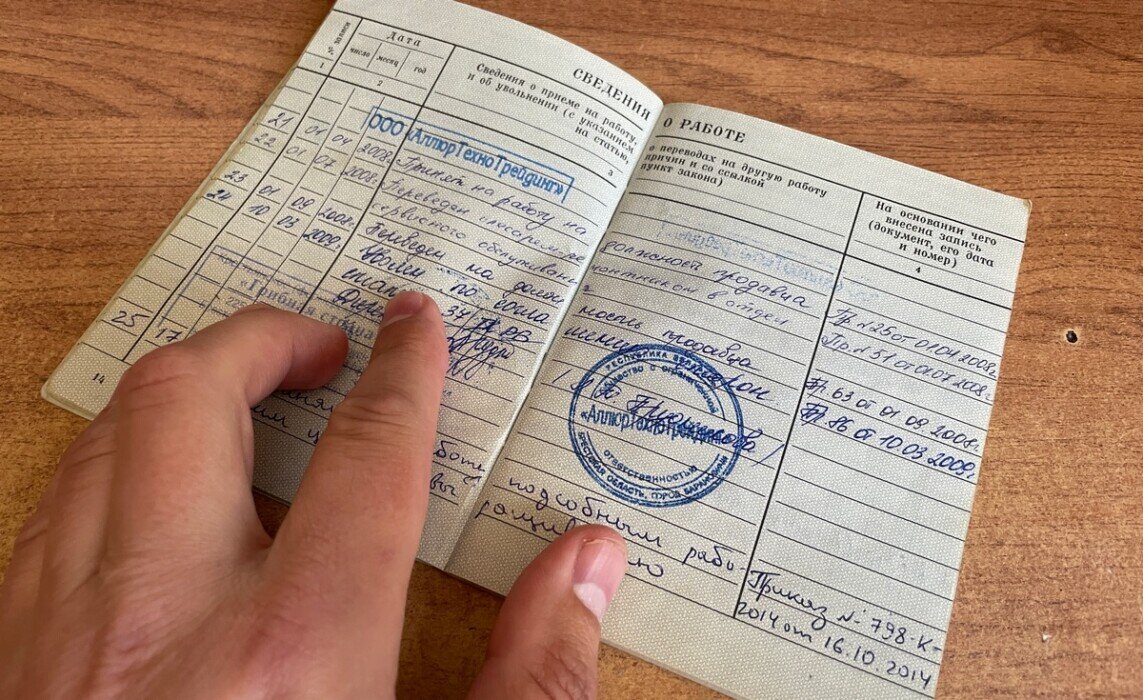 СВЕДЕНИЯ О РАБОТЕ
№ записи
Дата
число
месяц
год
Сведения о приеме на работу, о переводах на другую работу
и об увольнении (с указанием причин и со ссылкой
на статью, пункт закона)
На основании чего
внесена запись
(документ, его дата
и номер)
1
2
3
4
ООО «АллюрТехноТрейдинг»
21 01 04 2008г. Принят на работу на должность продавца Пр. №25 от 01.04.2008г.
22 01 07 2008г. Переведен слесарем-ремонтником в отдел Пр. №51 от 01.07.2008г.
сервисного обслуживания
23 01 09 2008г. Переведен на должность продавца Пр 63 от 01 09 2008г.
24 10 03 2009г. Уволен по согла Пр 86 от 10.03.2009г.
РЕСПУБЛИКА БЕЛАРУСЬ
общество с ограниченной
«АллюрТехноТрейдинг»
ответственностью
БРЕСТСКАЯ ОБЛАСТЬ, ГОРОД БАРАНОВИЧИ
25 17
работу подсобным рабо-
Приказ № 798-К-
2014 от 16.10.2014
14